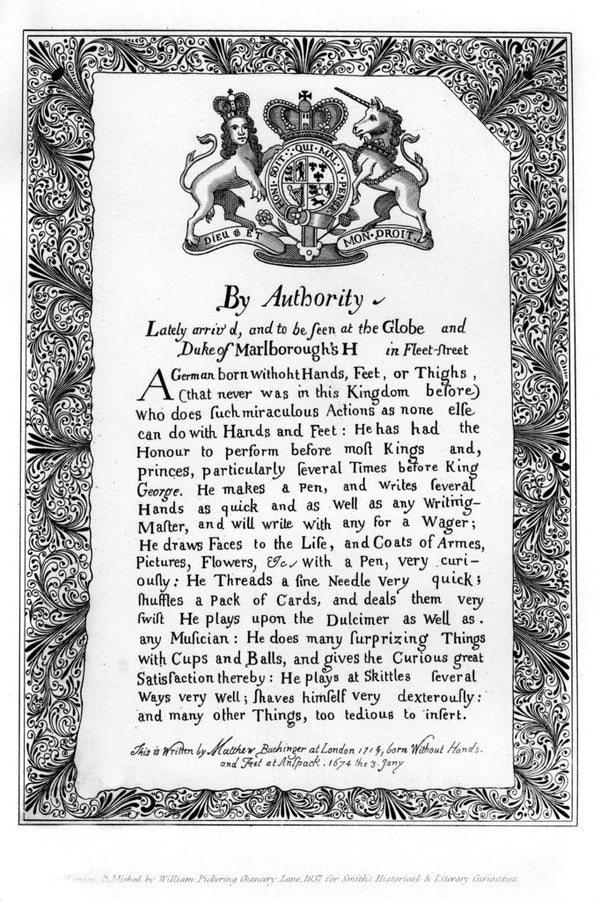 HONI · SOIT · QUI · MAL · Y · PEN
DIEU ET MON · DROIT
By Authority
Lately arriv'd, and to be ſeen at the Globe and
Duke of Marlborough's H in Fleet-ſtreet
A German born withoht Hands, Feet, or Thighs,
(that never was in this Kingdom before)
who does ſuch miraculous Actions as none elſe
can do with Hands and Feet: He has had the
Honour to perform before moſt Kings and,
princes, particularly ſeveral Times before King
George. He makes a Pen, and writes ſeveral
Hands as quick and as well as any Writing-
Maſter, and will write with any for a Wager;
He draws Faces to the Life, and Coats of Armes,
Pictures, Flowers, &c with a Pen, very curi-
ouſly: He Threads a fine Needle very quick;
ſhuffles a Pack of Cards, and deals them very
ſwift He plays upon the Dulcimer as Well as.
any Muſician: He does many ſurprizing Things
with Cups and Balls, and gives the Curious great
Satisfaction thereby: He plays at Skittles ſeveral
Ways very Well; ſhaves himſelf very dexterouſly:
and many other Things, too tedious to inſert.
This is Written by Matthew Buchinger at London born Without Hands.
and Feet at Anſpack. 1674 the 3. Jany
London, Published by William Pickering Chancery Lane 1837 for Smith's Historical & Literary Curiosities.